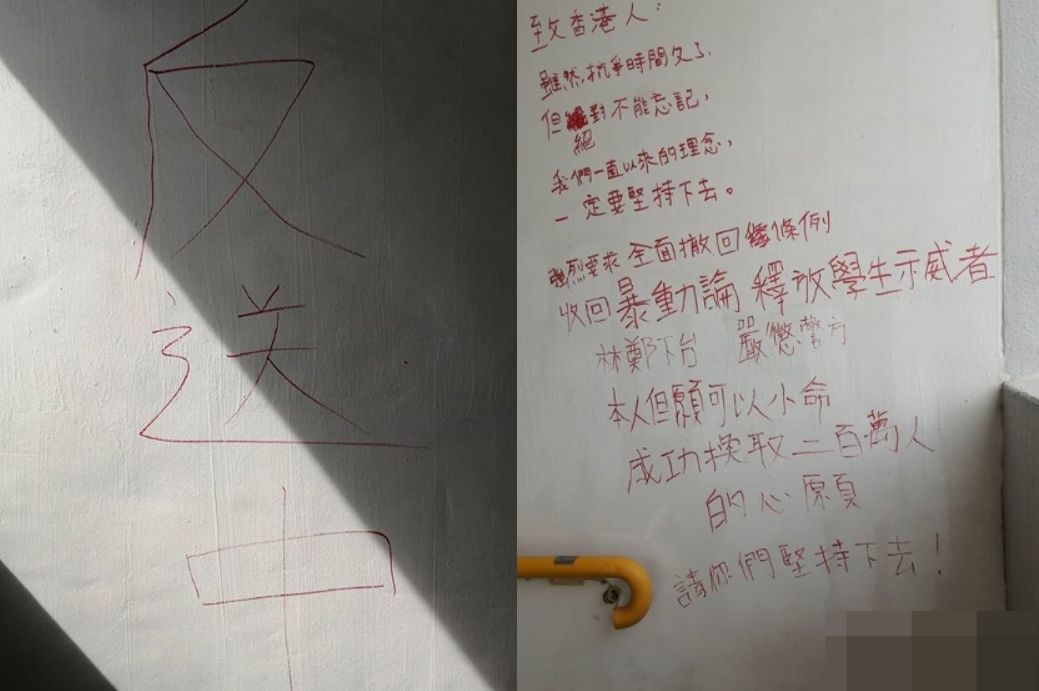 反
送
中
致香港人：
雖然,抗爭時間久了.
但絕對不能忘記,
我們一直以來的理念,
一定要堅持下去。
強烈要求 全面撤回條例
收回暴動論 釋放學生示威者
林鄭下台 嚴懲警方
本人但願可以小命
成功換取二百萬人
的心願
請你們堅持下去！